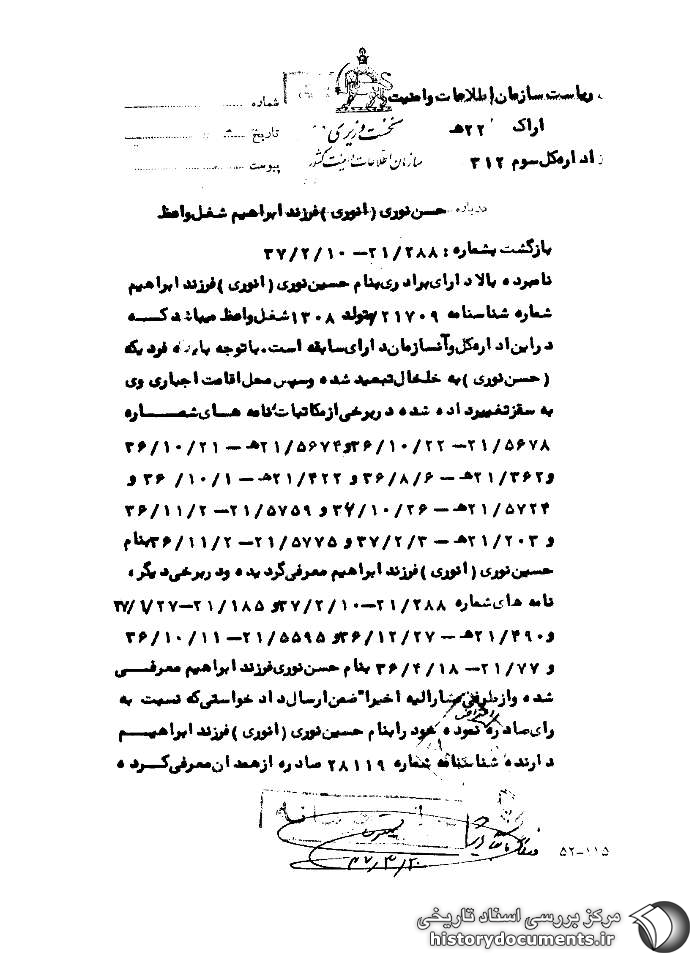 ریاست سازمان اطلاعات وامنیت
شماره
اراک ۲۲هـ
نخست وزیری
تاریخ
اداره کل سوم ۳۱۲
سازمان اطلاعات و امنیت کشور
پیوست
درباره حسن نوری (انوری) فرزند ابراهیم شغل واعظ
بازگشت بشماره : ۲۱/۲۸۸ – ۳۷/۲/۱۰
نامبرده بالا دارای برادری بنام حسین نوری (انوری) فرزند ابراهیم
شماره شناسنامه ۲۱۷۰۹ متولد ۱۳۰۸ شغل واعظ میباشد کـه
در این اداره کل و آنسازمان دارای سابقه است. با توجه باینکه فرد یکه
(حسن نوری) به خلخال تبعید شده وسپس محل اقامت اجباری وی
به سقز تغییر داده شده در برخی از مکاتبات؛ نامه های شمـــاره
۲۱/۵۶۷۸ – ۳۶/۱۰/۲۲ و ۲۱/۵۶۷۴هـ – ۳۶/۱۰/۲۱
و ۲۱/۳۶۲هـ – ۳۶/۸/۶ و ۲۱/۴۲۲هـ – ۳۶/۱۰/۱ و
۲۱/۵۷۲۴هـ – ۳۶/۱۰/۲۶ و ۲۱/۵۷۵۹ – ۳۶/۱۱/۲
و ۲۱/۲۰۳هـ – ۳۷/۲/۳ و ۲۱/۵۷۷۵ – ۳۶/۱۱/۲ بنام
حسین نوری (انوری) فرزند ابراهیم معرفی گردیده و در برخی دیگر ،
نامه های شماره ۲۱/۲۸۸ – ۳۷/۲/۱۰ و ۲۱/۱۸۵ – ۳۷/۱/۲۷
و ۲۱/۴۹۰هـ – ۳۶/۱۲/۲۷ و ۲۱/۵۵۹۵ – ۳۶/۱۰/۱۱
و ۲۱/۷۷ – ۳۶/۴/۱۸ بنام حسن نوری فرزند ابراهیم معرفـــی
شده و از طرفی مشارالیه اخیرا" ضمن ارسال داد خواستی که نسبت به
رای صادره اعتراض نموده خود را بنام حسین نوری (انوری) فرزند ابراهیــم
دارنده شناسنامه شماره ۲۸۱۱۹ صادره از همدان معرفی کـرده
۵۲-۱۱۵
۳۷/۳/۲۰
مرکز بررسی اسناد تاریخی
historydocuments.ir